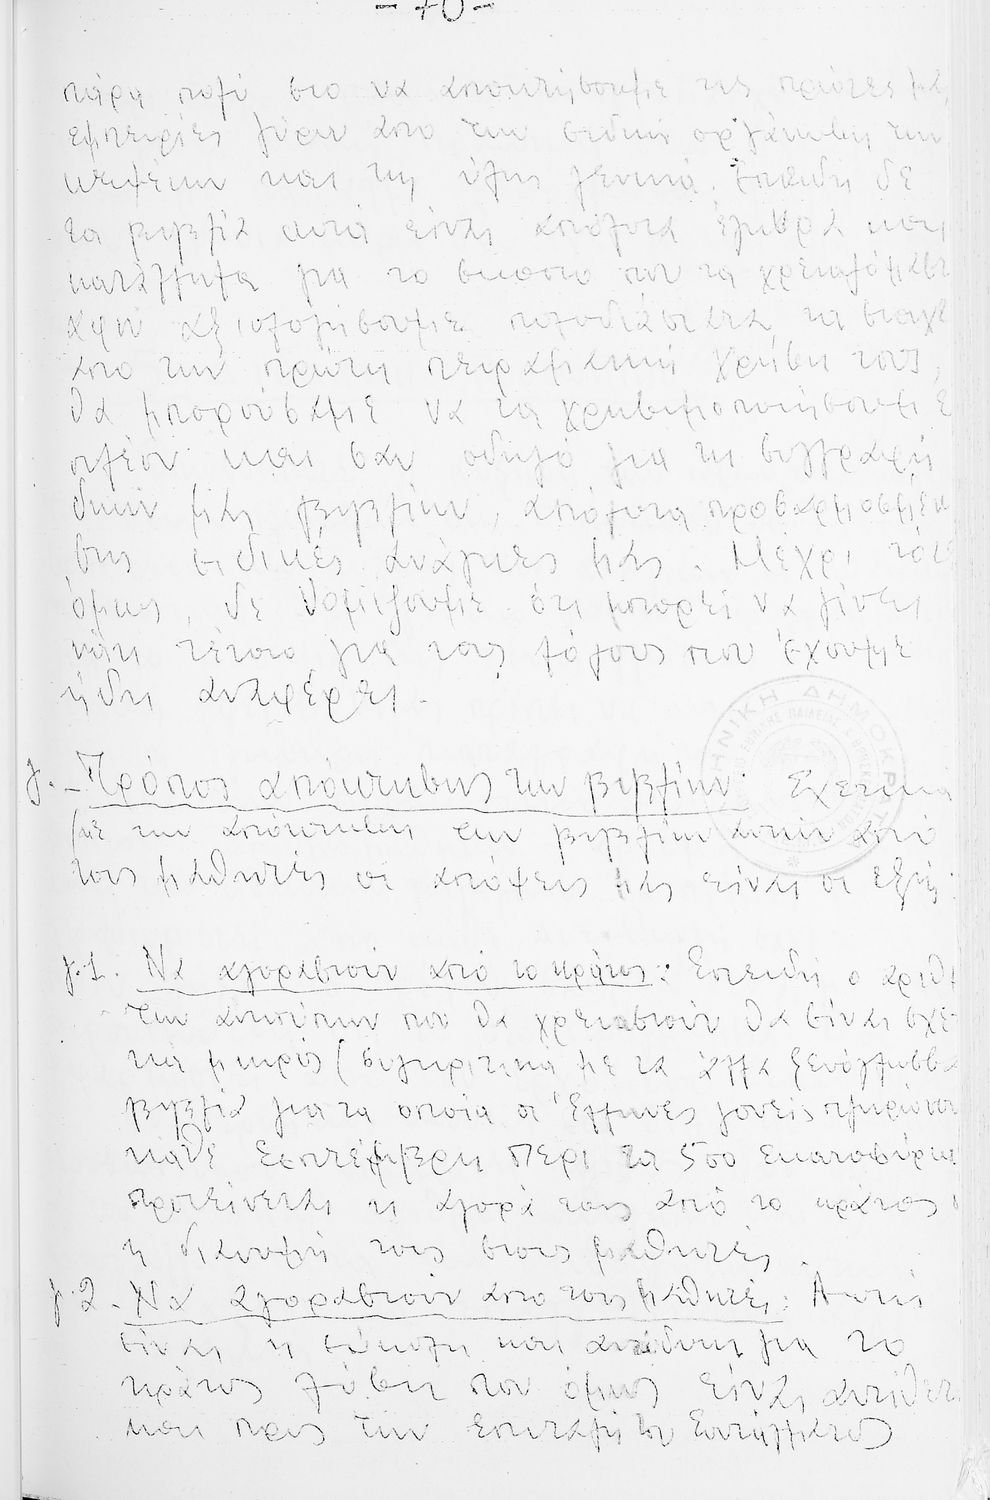 -70-
πάρα πολύ στο να αποκτήσουμε τις πρώτες μας
εμπειρίες γύρω απο την ειδική οργάνωση των
και της ύλης γενικά. Επειδή δε
τα βιβλία αυτά είναι απόλυτα έγκυρα και
κατάλληλα για το σκοπό που τα χρειαζόμαστε
αφού αξιολογήσουμε πολυδιάστατα τα στοιχε
απο την πρώτη πειραματική χρήση τους,
θα μπορούσαμε να τα χρησιμοποιήσουμε ε
πλέον και σαν οδηγό για τη συγγραφή
δικών μας βιβλίων, απόλυτα προσαρμοσμένων
στις ειδικές ανάγκες μας. Μέχρι τότε
όμως, δε νομίζουμε ότι μπορεί να γίνει
κάτι τέτοιο για τους λόγους που έχουμε
ήδη αναφέρει.
γ. - Τρόπος απόκτησης των βιβλίων: Σχετικά
με την απόκτηση των βιβλίων αυτών από
τους μαθητές οι απόψεις μας είναι οι εξής:
γ.1. Να αγοραστούν από το κράτος: Επειδή ο αριθ
των αντιτύπων που θα χρειαστούν θα είναι σχε
τικά μικρός (συγκριτικά με τα άλλα ξενόγλωσσα
βιβλία για τα οποία οι Έλληνες γονείς πληρώνουν
κάθε Σεπτέμβρη περι τα 500 εκατομύρια
προτείνεται η αγορά τους από το κράτος
η διανομή τους στους μαθητές.
γ.2. Να αγοραστούν απο τους μαθητές: Αυτή
είναι η εύκολη και ανώδυνη για το
κράτος λύση που όμως είναι αντίθετη
και προς την επιταγή του Συντάγματος